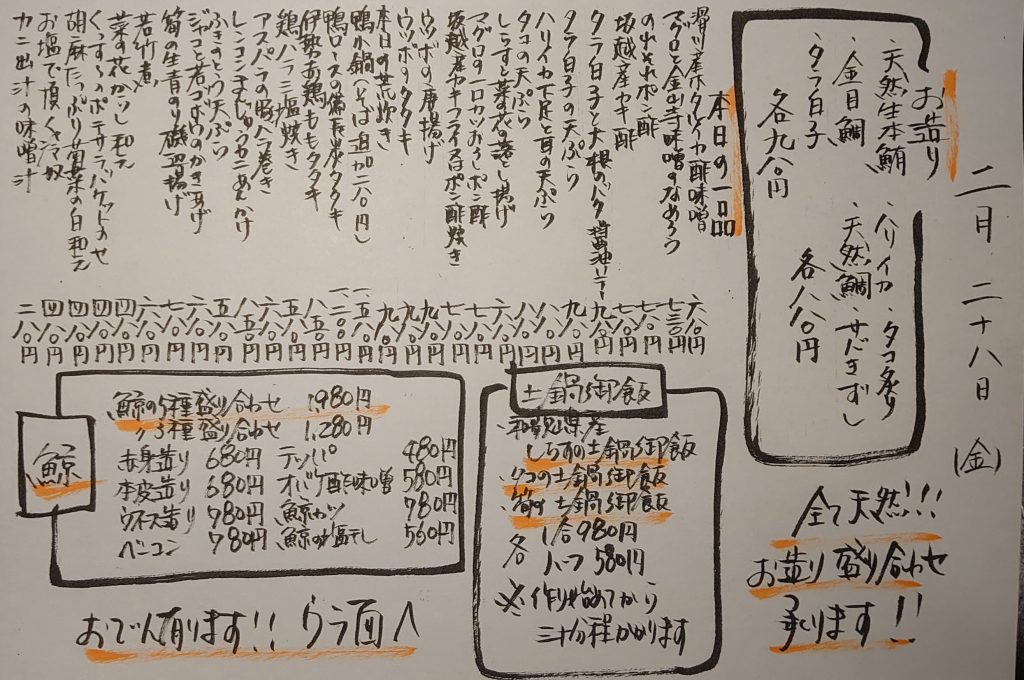 二月二十八日(金)
お造り
・天然生本鮪
・金目鯛
・タラ白子
各九八〇円
・ハリイカ
・タコ炙り
・天然鯛
・サバきずし
各八八〇円
全て天然!!!
お造り盛り合わせ
承ります!!
本日の一品
滑川産ホタルイカ酢味噌 六八〇円
マグロと金山寺味噌のなめろう 七三〇円
のれそれポン酢
坂越産カキ酢
タラ白子と大根のバター醤油ソテー
タラ白子の天ぷら
ハリイカ下足と耳の天ぷら
タコの天ぷら
しらすと菜の花の落とし揚げ
マグロの一口カツおろしポン酢
坂越産カキフライ又はポン酢焼き
ウツボの唐揚げ
ウツボのタタキ
本日の荒炊き
鴨小鍋(そば追加二八〇円)
鴨ロースの備長炭タタキ
伊勢赤鶏ももタタキ
鶏ハラミ塩焼き
アスパラの豚バラ巻き
レンコンまんじゅうカニあんかけ
ふきのとう天ぷら
ジャコと若ゴボウのかき揚げ
筍の生青のり磯辺揚げ
若竹煮
菜の花からし和え
くんすものポテサラバケットのせ
胡麻たっぷり菊菜の白和え
お塩で頂く冷奴
カニ出汁の味噌汁 二八〇円
土鍋御飯
・和歌山県産
しらすの土鍋御飯
・タコの土鍋御飯
・筍の土鍋御飯
各 1合980円
ハーフ580円
※作り始めてから
三十分程かかります
鯨
鯨の5種盛り合わせ 1,980円
〃3種盛り合わせ 1,280円
赤身造り 680円 テッパ 480円
本皮造り 680円 オバケ酢味噌 580円
ウネス造り 780円 鯨カツ 780円
ベーコン 780円 鯨の塩干し 560円
おでん有ります!! ウラ面へ